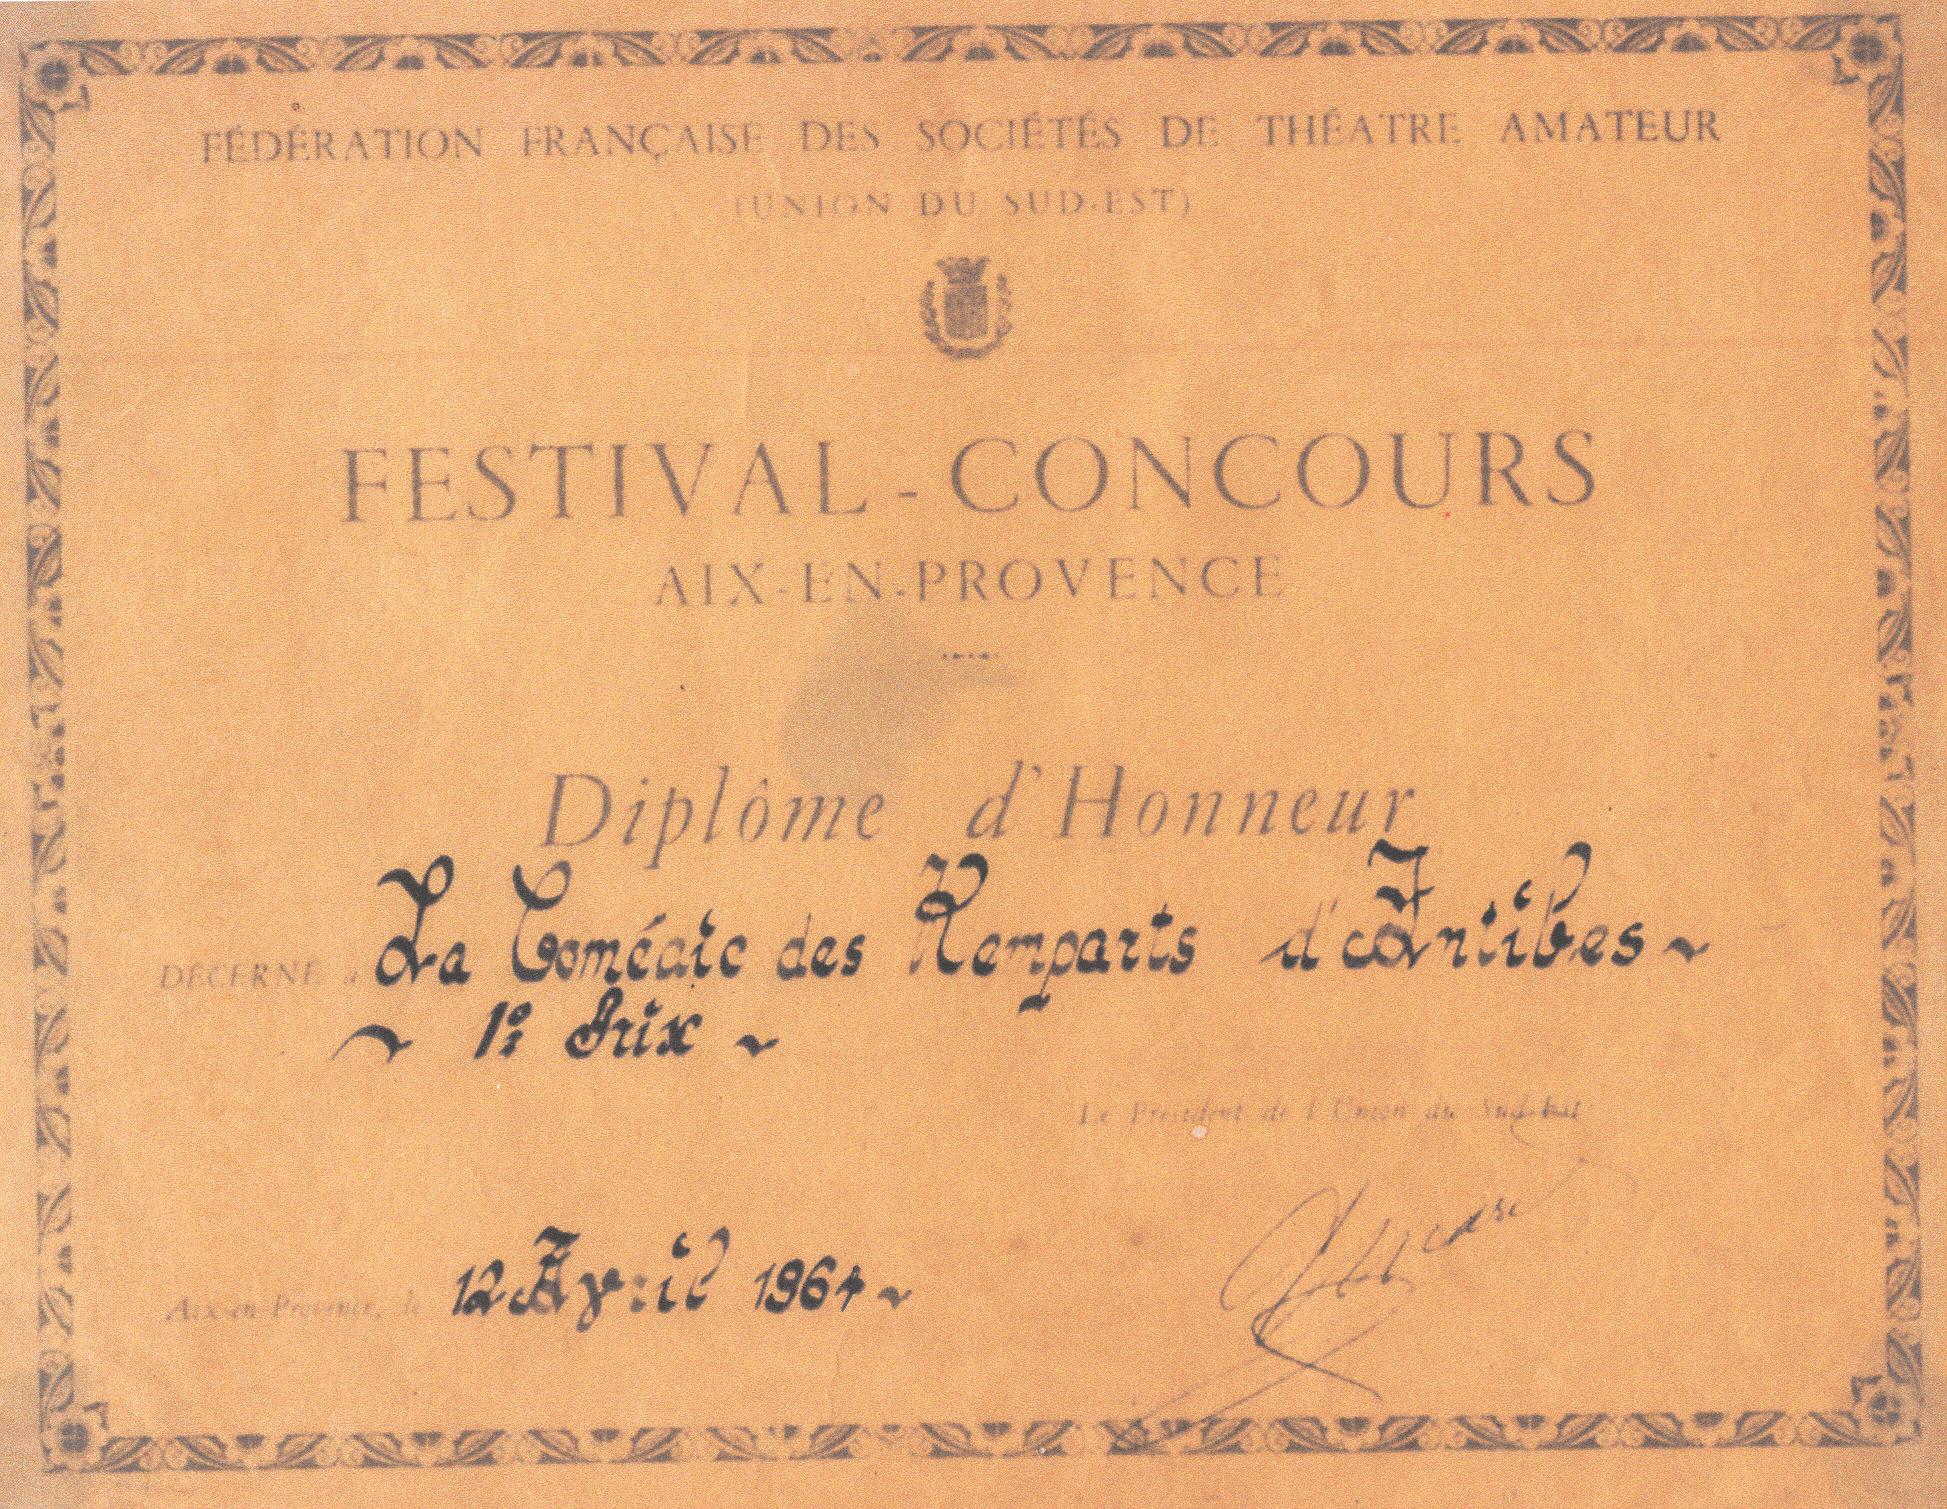 FÉDÉRATION FRANÇAISE DES SOCIÉTÉS DE THÉATRE AMATEUR
(UNION DU SUD-EST)
FESTIVAL - CONCOURS
AIX-EN-PROVENCE
Diplôme d'Honneur
DÉCERNÉ à La Comédie des Remparts d'Antibes
1er Prix
Le Président de l'Union du Sud-Est
Aix-en-Provence, le 12 Avril 1964